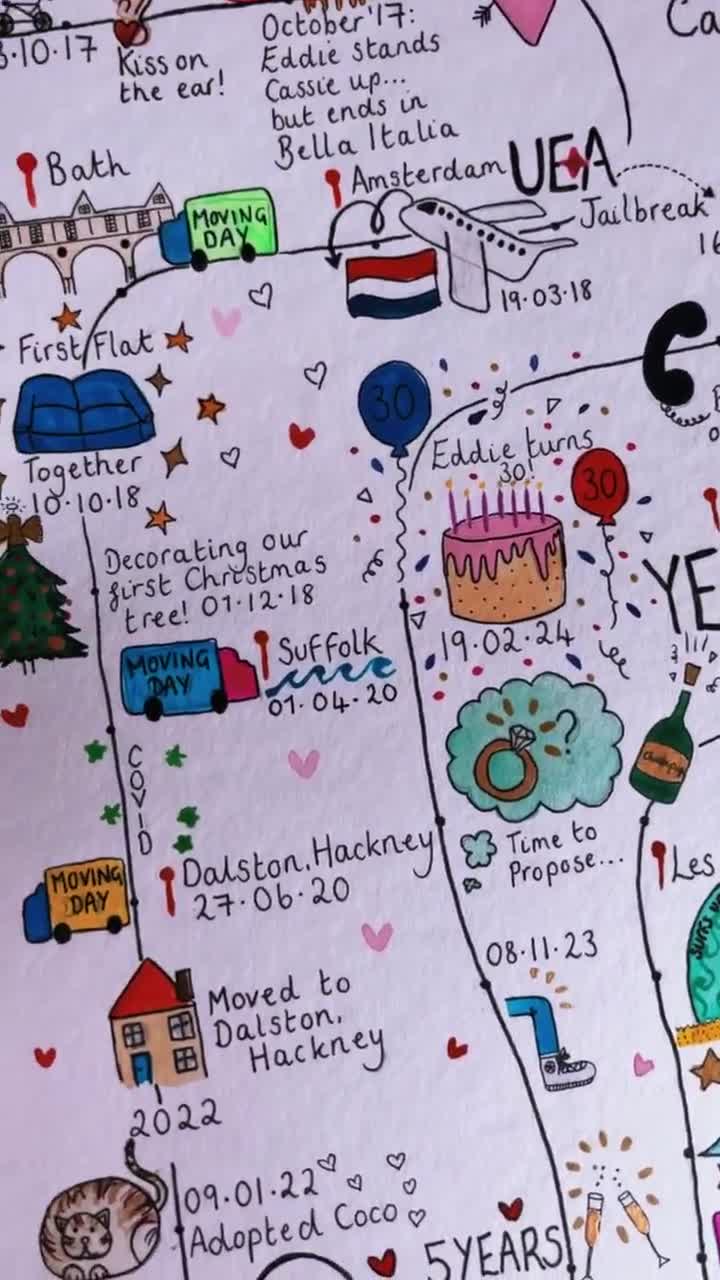 3.10.17
Kiss on
the ear!
October '17:
Eddie stands
Cassie up...
but ends in
Bella Italia
Ca
Bath
MOVING
DAY
Amsterdam
UEA
Jailbreak
16
19.03.18
First Flat
Together
10.10.18
30
Eddie turns
30!
30
19.02.24
Decorating our
first Christmas
tree! 01.12.18
MOVING
DAY
Suffolk
01.04.20
YE
COVID
Champagne
Time to
Propose...
Les
MOVING
DAY
Dalston, Hackney
27.06.20
08.11.23
Moved to
Dalston,
Hackney
2022
09.01.22
Adopted Coco
5YEARS